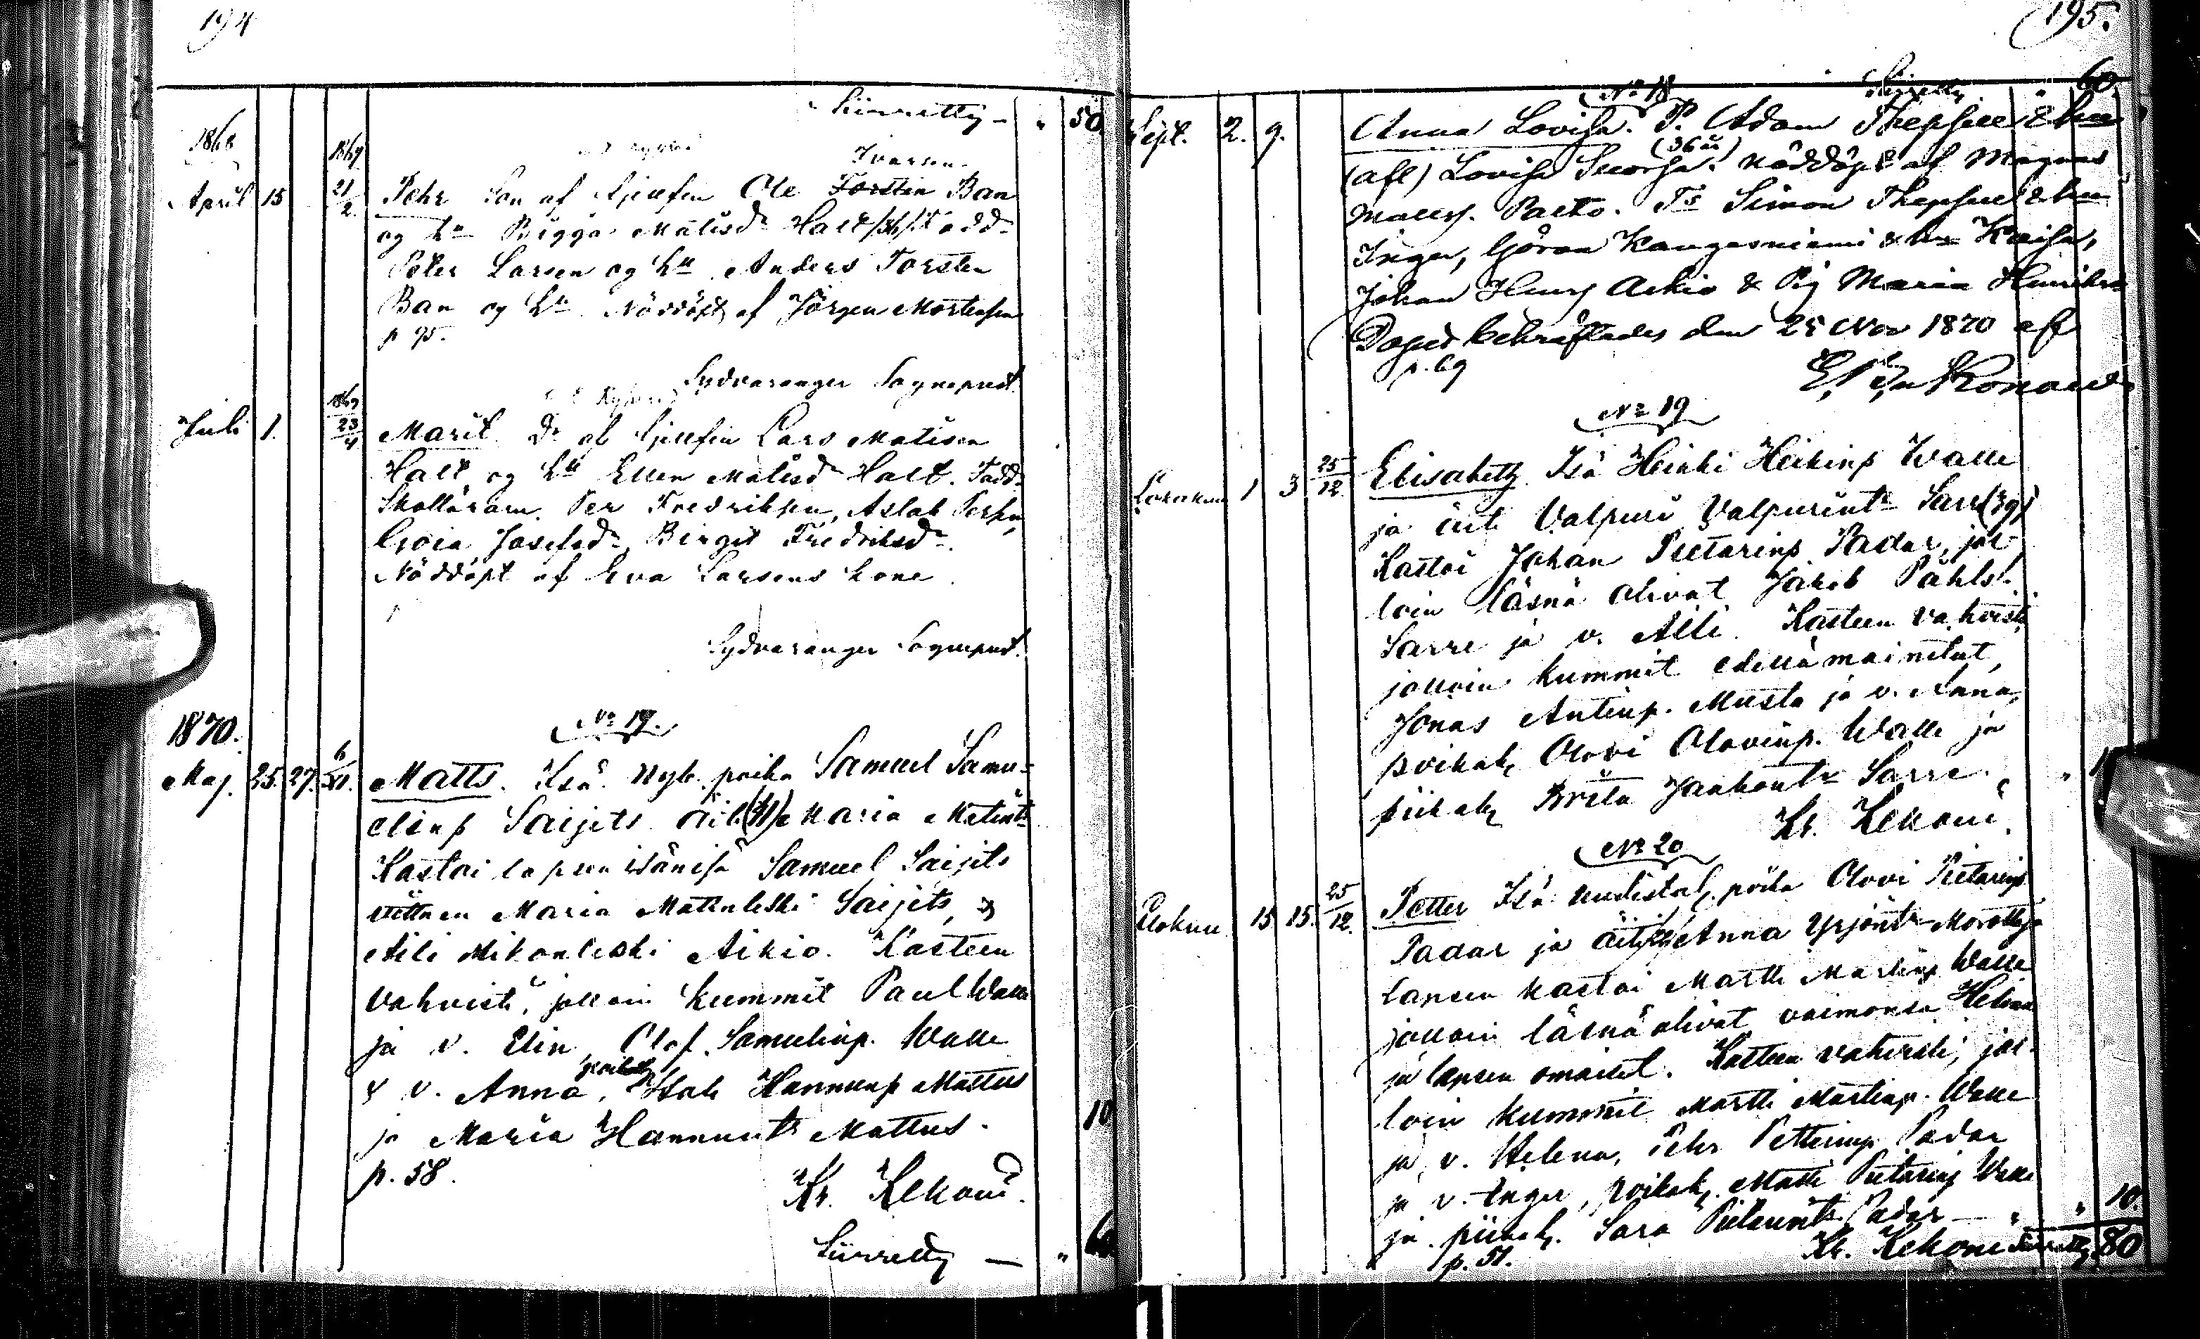 194
Siirretty — " 50
1868 1869
Ivarsen.
April 15 21/2 Pehr Son af fjellfin Ole Torsten Ban
og h. Bigga Matisd. Halt /36/ Fadd.
Peter Larsen og h. Anders Torsten
Ban og h. Nöddöpt af Jörgen Mortensen
p 95.
Sydvaranger Sognepræst.
1869
Juli 1. 23/4 Marit Dr af fjellfin Lars Matisen
Halt og h. Ellen Matisd. Halt. Fadd.
Per Fredriksen, Aslak Persen,
Josefsd., Birgit Fredriksd.
Nöddöpt af Eva Larsens kone.
Sydvaranger Sognepræst.
1870. No 17.
Maj. 25. 27. 6/XI. Matts. Isä: Uysk. poika Samuel Samu-
elinp Saijets äiti Maria Matint.
Kastoi lapsen isänisä Samuel Saijets
Maria Matinleski Saijets &
Aili Mikonleski Aikio. Kasteen
vahvisti, jolloin kummit Paul Walle
ja v. Elin, Olof Samulinp. Walle
& v. Anna, poikak. Isak Hannunp Mattus
ja Maria Hannunt. Mattus. 10
p. 58.
Kr. Kekoni.
Siirretty — " 60
195.
No 18 Siirretty " 60.
Sept. 2. 9. Anna Lovisa. F. Adam Thepsell & hu
(afl) Lovisa Snorsa. (36 år) Nöddöpt af Magnus
Mattss. Paito. Ts Simon Thepsell & hu
Inger, Göran Kangasniemi & hu Kaisa,
Johan Henr. Aikio & Pig Maria Henriksd
Dopet bekräftades den 25 Nov 1870 af
p. 69
No 19
Lokakuu 1 3 25/12. Elisabeth Isä Heikki Heikinp Walle
ja äiti Valpuri Valpurint. Sarre (39)
Kastoi Johan Pietarinp Padar, jol-
loin läsnä olivat Jakob Påhls.
Sarre ja v. Aili. Kasteen vahvisti,
jolloin kummit edellä mainitut,
Jonas Antinp. Musta ja v. Anna,
poikak. Olovi Olovinp. Walle ja
piikak. Brita Jaakont. Sarre.
Kr. Kekoni.
No 20
Elokuu 15 15. 25/12. Petter Isä uudistal. poika Olovi Pietarinp
Padar ja äiti Anna Yrjönt. Morottaja
Lapsen kastoi Martti Martinp Walle
jolloin läsnä olivat vaimonsa Helena
ja lapsen omaiset. Kasteen vahvisti, jol-
loin kummit Martti Martinp. Walle
ja v. Helena, Pehr Petterinp Padar
ja v. Inger, poikak. Matti Pietarinp Walle
ja piikak. Sara Pietarint. Padar — " " 10.
p. 51. Kr. Kekoni Siirretty 80